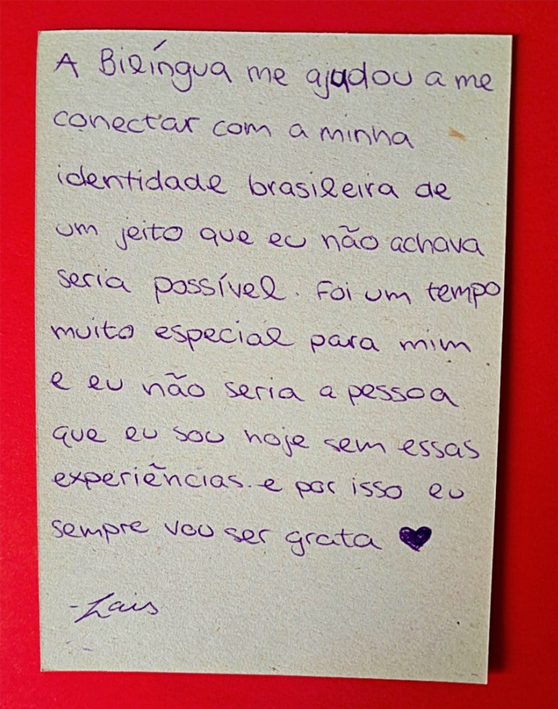 A Bilíngua me ajudou a me
conectar com a minha
identidade brasileira de
um jeito que eu não achava
seria possível. Foi um tempo
muito especial para mim
e eu não seria a pessoa
que eu sou hoje sem essas
experiências. e por isso eu
sempre vou ser grata ♥
-Lais